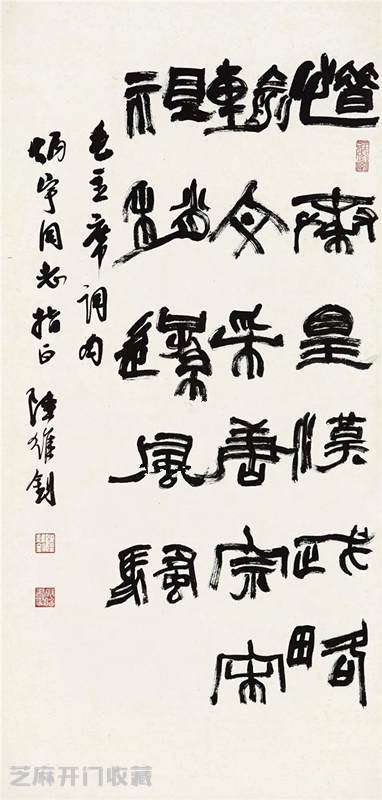 惜秦皇漢武略
輸文采唐宗宋
祖稍遜風騷
毛主席詞句
炳宇同志指正 陸維釗
芝麻开门收藏